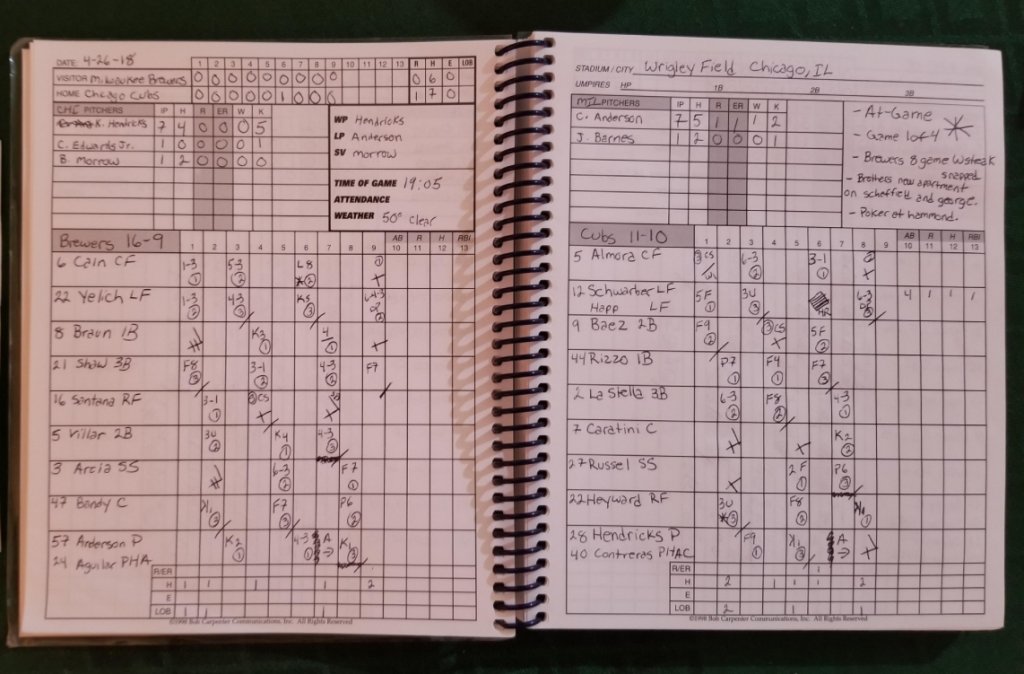 DATE: 4-26-18 1 2 3 4 5 6 7 8 9 10 11 12 13 R H E LOB
VISITOR Milwaukee Brewers 0 0 0 0 0 0 0 0 0 0 6 0
HOME Chicago Cubs 0 0 0 0 0 1 0 0 1 7 0
CHI PITCHERS IP H R ER W K
K. Hendricks 7 4 0 0 0 5
C. Edwards Jr. 1 0 0 0 0 1
B. Morrow 1 2 0 0 0 0
WP Hendricks
LP Anderson
SV Morrow
TIME OF GAME 19:05
ATTENDANCE
WEATHER 50° Clear
Brewers 16-9 1 2 3 4 5 6 7 8 9 AB 10 R 11 H 12 RBI 13
6 Cain CF 1-3 5-3 L8
22 Yelich LF 1-3 4-3 KS 6-4-3
8 Braun 1B K3
21 Shaw 3B F8 3-1 4-3 F7
16 Santana RF 3-1 CS
5 Villar 2B 3U K4 4-3
3 Arcia SS 6-3 F7
47 Bandy C F7 P6
57 Anderson P K2 4-3 A
24 Aguilar PHA
R/ER
H 1 1 1 1 2
E
LOB 1 1 1
©1998 Bob Carpenter Communications, Inc. All Rights Reserved
STADIUM / CITY Wrigley Field Chicago, IL
UMPIRES HP 1B 2B 3B
MIL PITCHERS IP H R ER W K
C. Anderson 7 5 1 1 1 2
J. Barnes 1 2 0 0 0 1
- At-Game
- Game 1 of 4
- Brewers 8 game Wsteak
snapped
- Brothers new apartment
on scheffield and george.
- Poker at hammond.
Cubs 11-10 1 2 3 4 5 6 7 8 9 AB 10 R 11 H 12 RBI 13
5 Almora CF CS 6-3 3-1
12 Schwarber LF 5F 3U HR 6-3 4 1 1 1
Happ LF
9 Baez 2B F9 CS 5F
44 Rizzo 1B P7 F4 F7
2 La Stella 3B 6-3 F8 4-3
7 Caratini C K2
27 Russel SS 2F P6
22 Heyward RF 3U F8
28 Hendricks P F9 A
40 Contreras PHAC
R/ER
H 2 1 1 1 2
E
LOB 2 1
©1998 Bob Carpenter Communications, Inc. All Rights Reserved